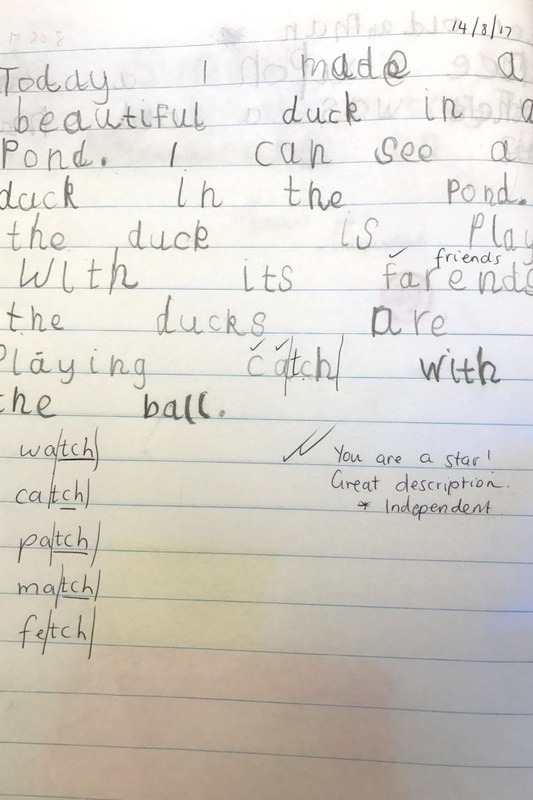 14/8/17
Today I made a
beautiful duck in a
Pond. I can see a
duck in the pond.
the duck is Play
friends
With its farends
the ducks are
Playing catch with
the ball.
watch
catch
patch
match
fetch
You are a star!
Great description.
* Independent